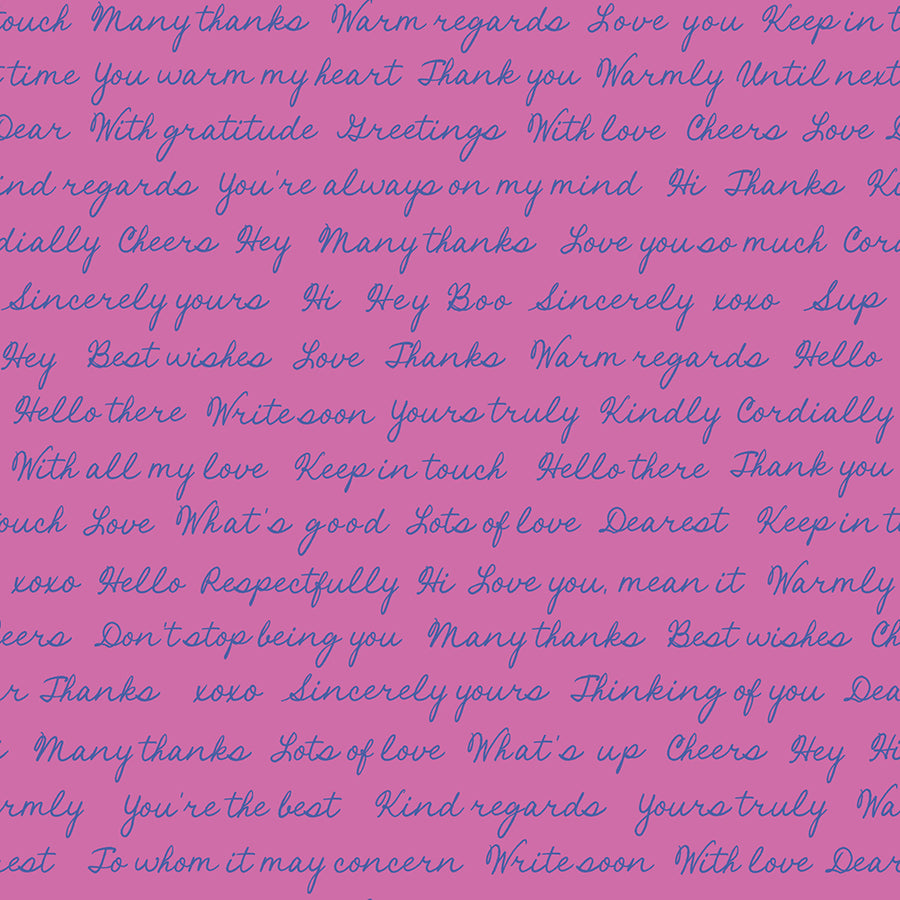 touch Many thanks Warm regards Love you Keep in t
t time You warm my heart Thank you Warmly Until next
Dear With gratitude Greetings With love Cheers Love D
ind regards You're always on my mind Hi Thanks Ki
dially Cheers Hey Many thanks Love you so much Cord
Sincerely yours Hi Hey Boo Sincerely xoxo Sup
Hey Best wishes Love Thanks Warm regards Hello
Hello there Write soon Yours truly Kindly Cordially
With all my love Keep in touch Hello there Thank you
ouch Love What's good Lots of love Dearest Keep in to
xoxo Hello Respectfully Hi Love you, mean it Warmly
eers Don't stop being you Many thanks Best wishes Ch
r Thanks xoxo Sincerely yours Thinking of you Dea
i Many thanks Lots of love What's up Cheers Hey Hi
rmly You're the best Kind regards Yours truly Wa
rest To whom it may concern Write soon With love Dear